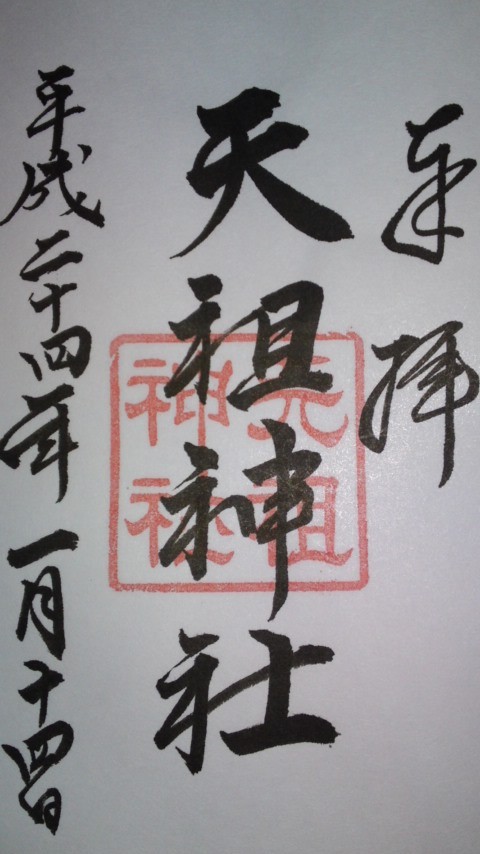 奉拝
天祖神社
天祖神社
平成二十四年一月十四日